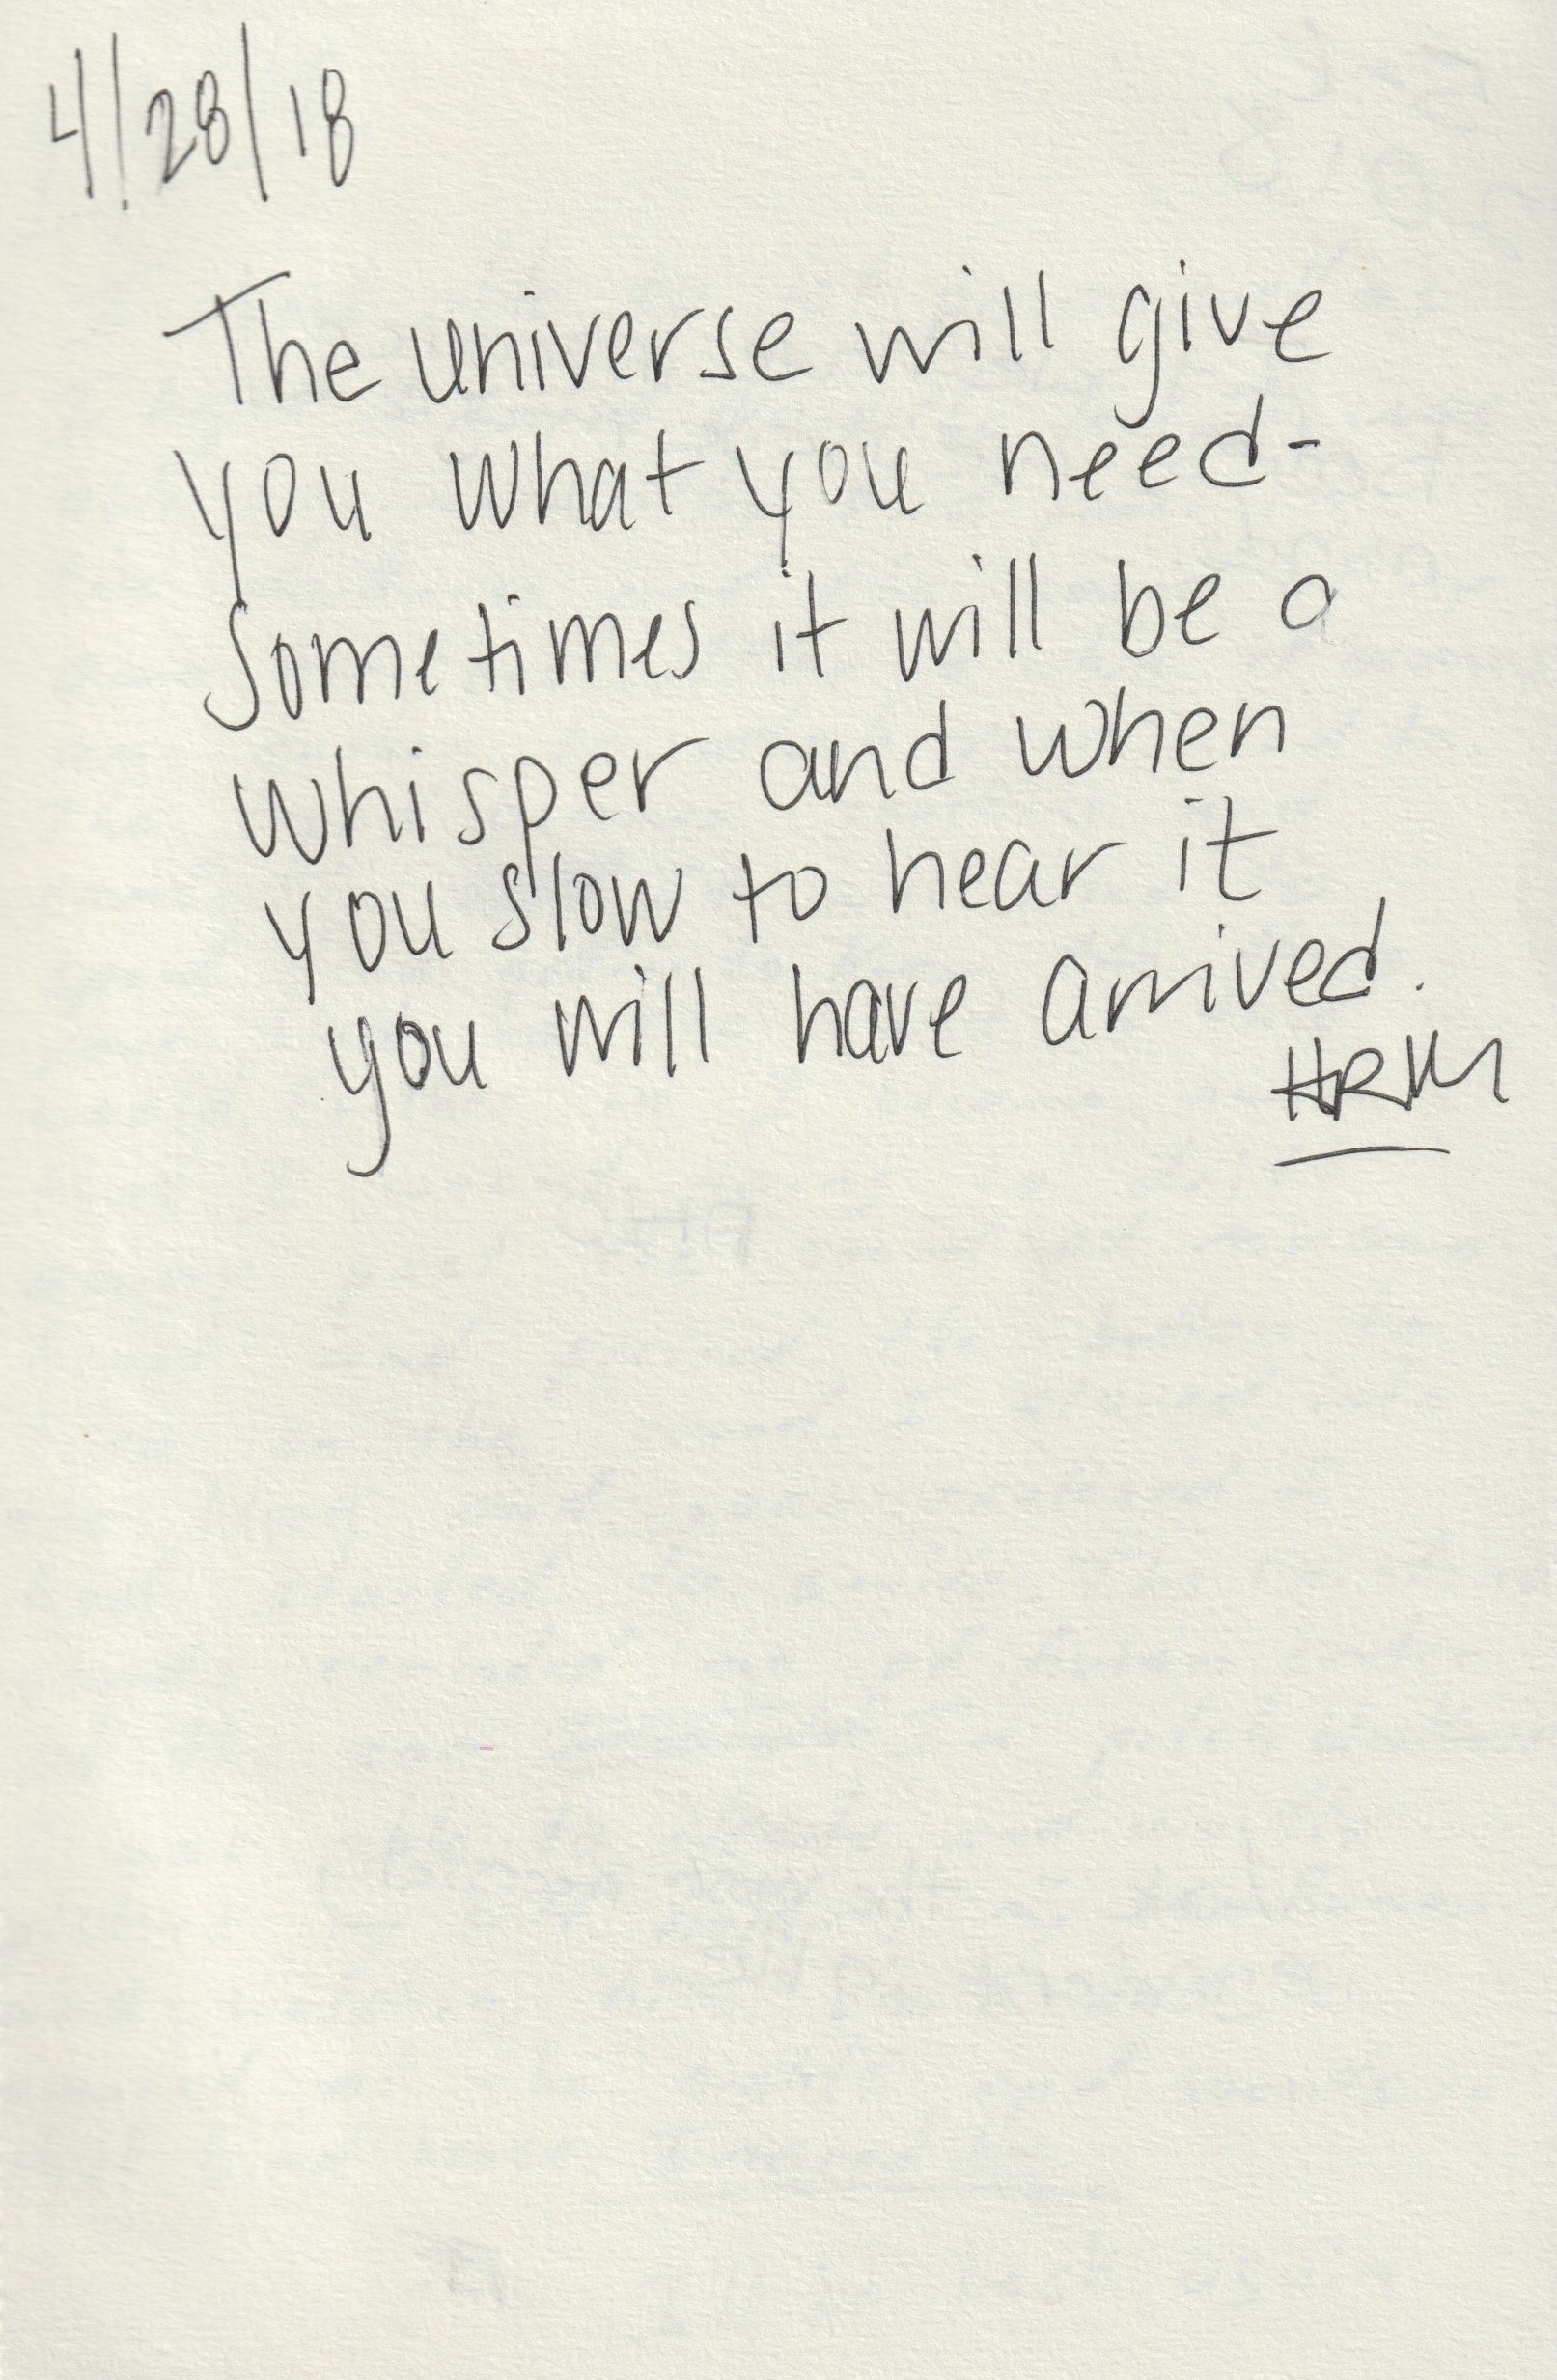 4/28/18
The universe will give
you what you need-
sometimes it will be a
whisper and when
you slow to hear it
you will have arrived.
HRM